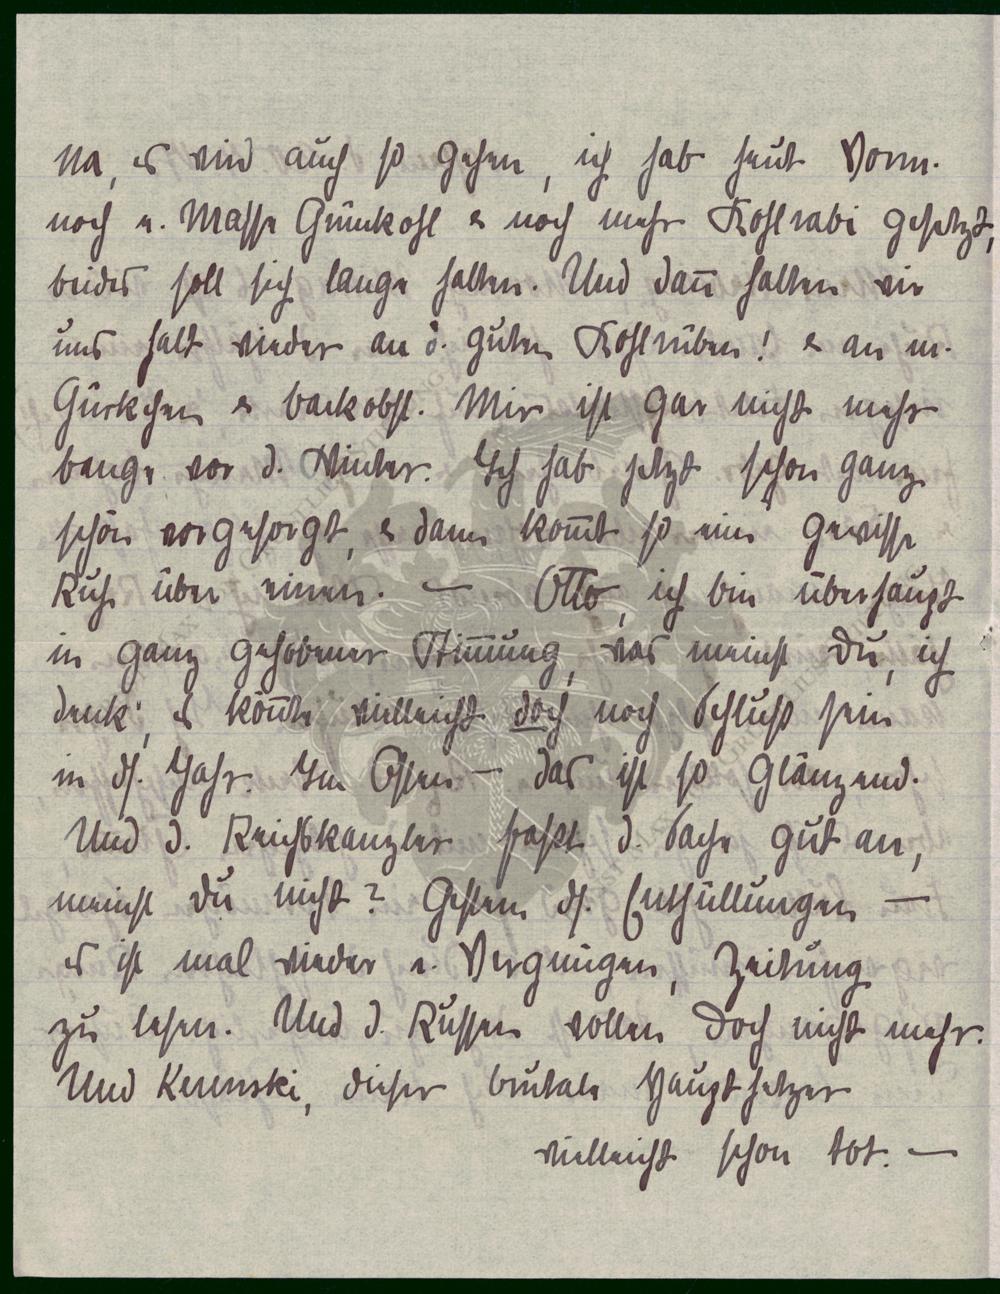 Na, es wird auch so gehen, ich hab heut Vorm.
noch e. Masse Grünkohl & noch mehr Kohlrabi gesetzt,
beides soll sich lange halten. Und dan̄ halten wir
uns halt wieder an d. guten Kohlrüben! & an m.
Gürkchen & Backobst. Mir ist gar nicht mehr
bange vor d. Winter. Ich hab jetzt schon ganz
schön vorgesorgt, & dann kom̄t so eine gewisse
Ruhe über einen. — Otto, ich bin überhaupt
in ganz gehobener Stim̄ung, was meinst Du, ich
denk', es kön̄te vielleicht doch noch Schluß sein
in ds. Jahr. Im Osten — das ist so glänzend.
Und d. Reichskanzler faßt d. Sache gut an,
meinst Du nicht? Gestern ds. Enthüllungen —
es ist mal wieder e. Vergnügen, Zeitung
zu lesen. Und d. Russen wollen doch nicht mehr.
Und Kerenski, dieser brutale Haupthetzer
vielleicht schon tot. —